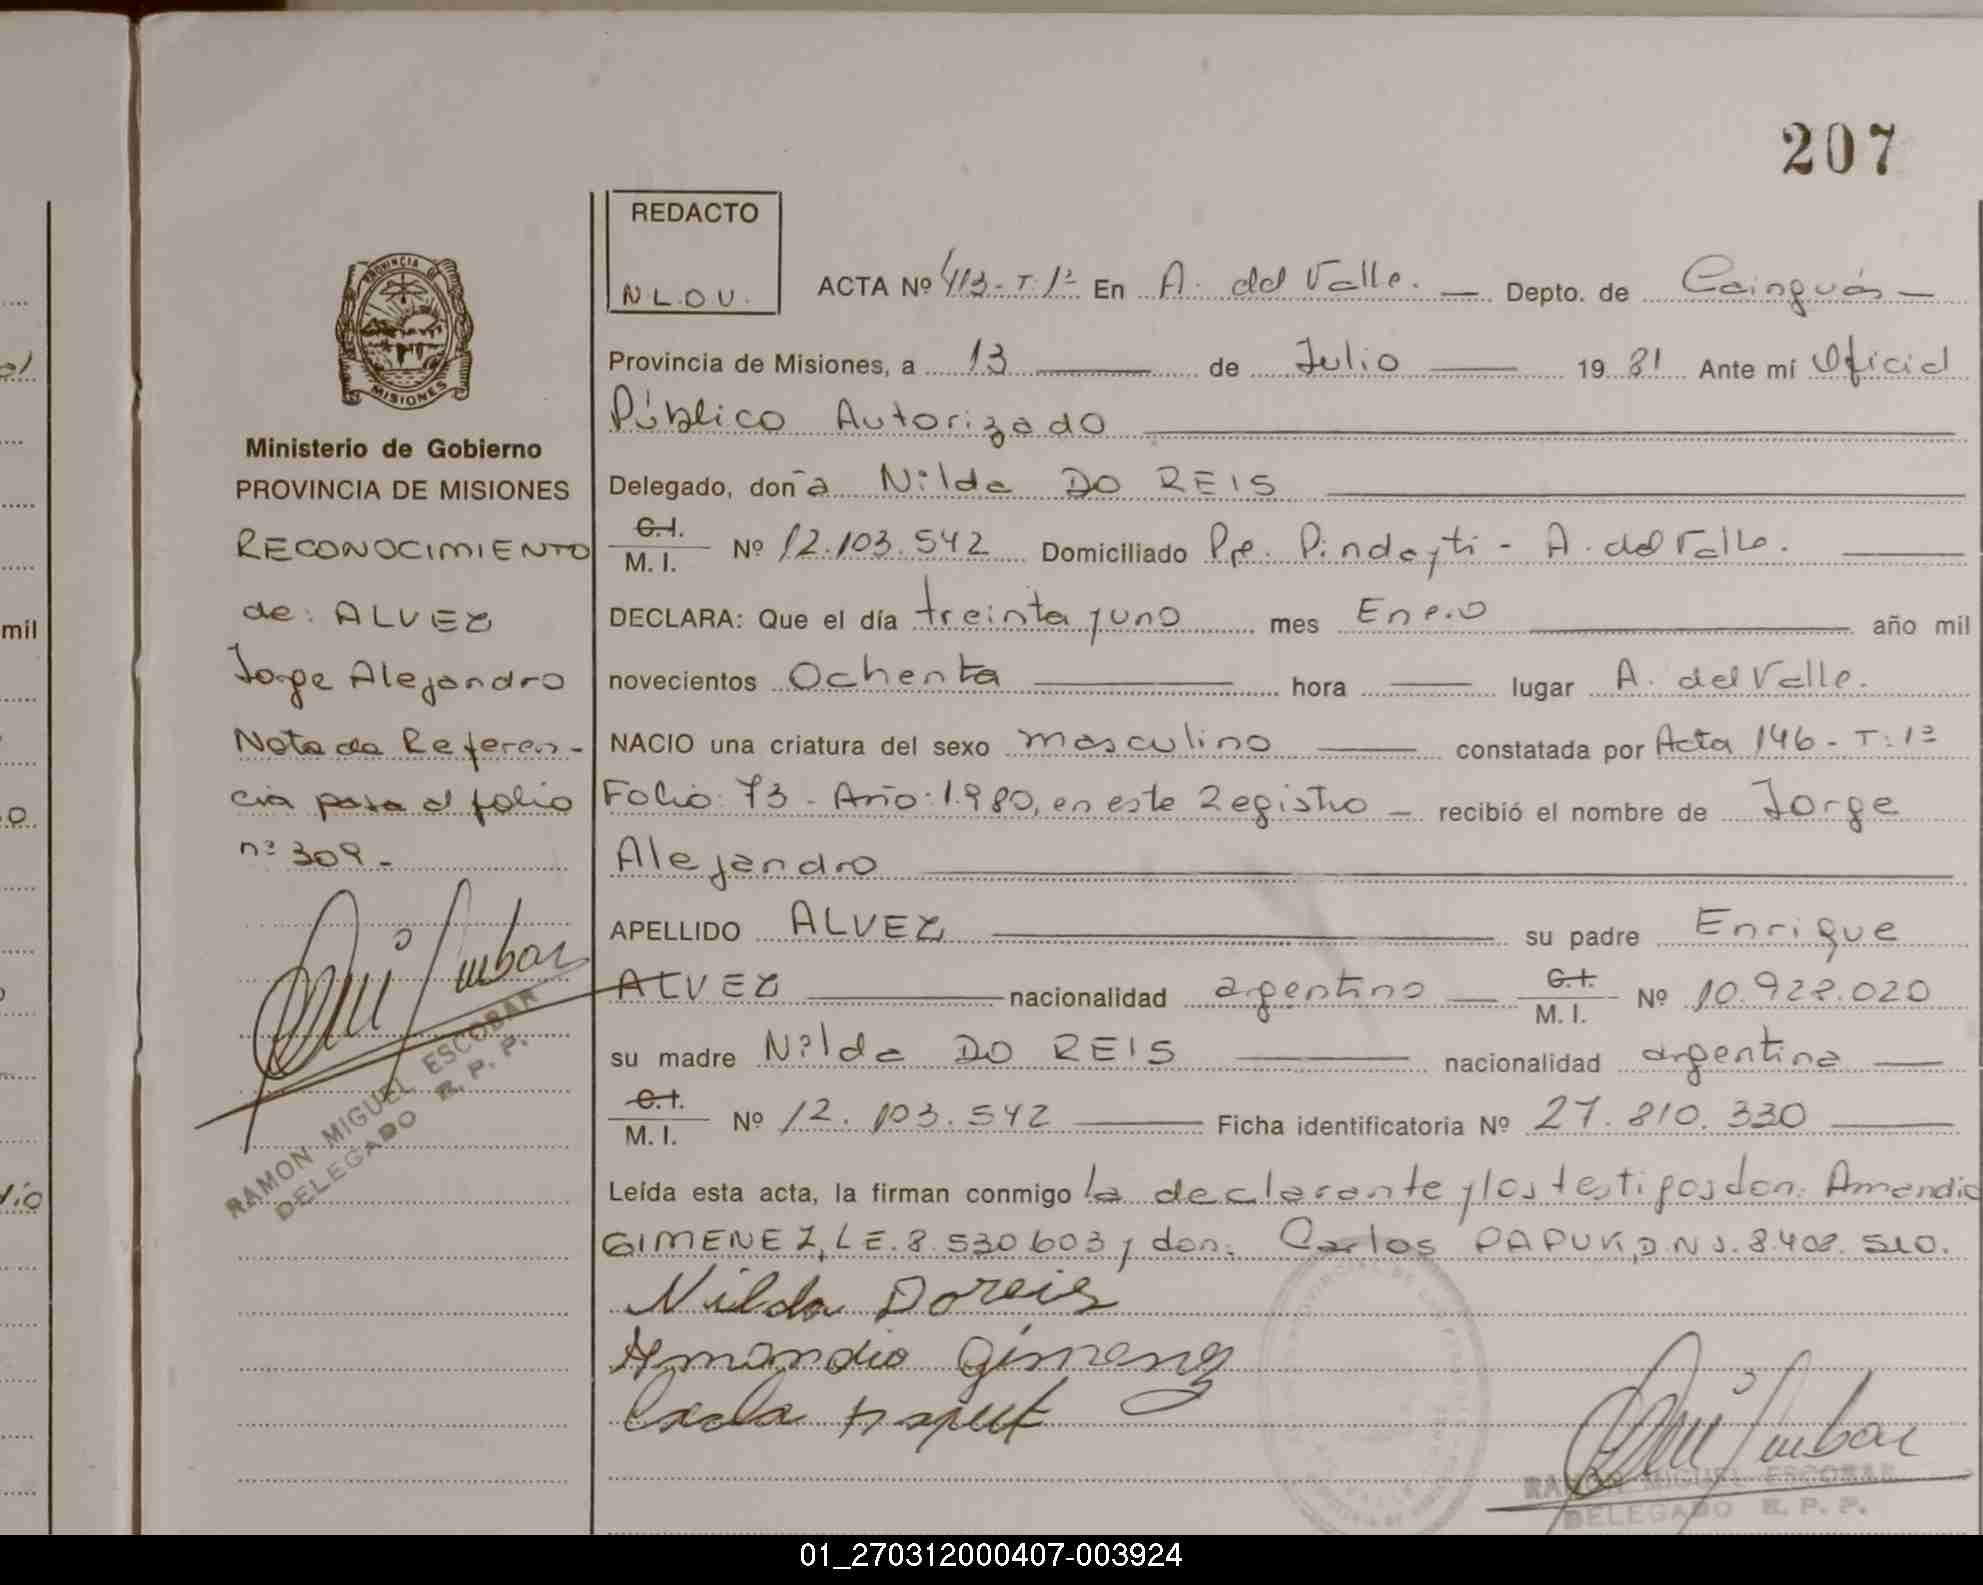 207
REDACTO
N.L.D.U.
ACTA Nº 413-T:1º En A. del Valle. Depto. de Cainguás
Provincia de Misiones, a 13 de Julio 1981 Ante mí Oficial
Público Autorizado
Delegado, doña Nilda DO REIS
C.I.
M. I. Nº 12.103.542 Domiciliado Pje. Pindayti - A. del Valle.
DECLARA: Que el día treinta y uno mes Enero año mil
novecientos Ochenta hora lugar A. del Valle.
NACIO una criatura del sexo masculino constatada por Acta 146 - T:1º
Folio: 73 - Año: 1.980, en este Registro - recibió el nombre de Jorge
Alejandro
APELLIDO ALVEZ su padre Enrique
ALVEZ nacionalidad argentino C.I.
M. I. Nº 10.928.020
su madre Nilda DO REIS nacionalidad argentina
C.I.
M. I. Nº 12.103.542 Ficha identificatoria Nº 27.810.330
Leída esta acta, la firman conmigo la declarante y los testigos don: Amandio
GIMENEZ, L.E. 8.530.603 y don: Carlos PAPUK, D.N.I. 8.408.510.
Nilda Doreis
Amandio Gimenez
RAMON MIGUEL ESCOBAR
DELEGADO R. P. P.
PROVINCIA DE
MISIONES
Ministerio de Gobierno
PROVINCIA DE MISIONES
RECONOCIMIENTO
de: ALVEZ
Jorge Alejandro
Nota de Referen-
cia pasa al folio
nº 309-
RAMON MIGUEL ESCOBAR
DELEGADO R. P. P.
mil
01_270312000407-003924